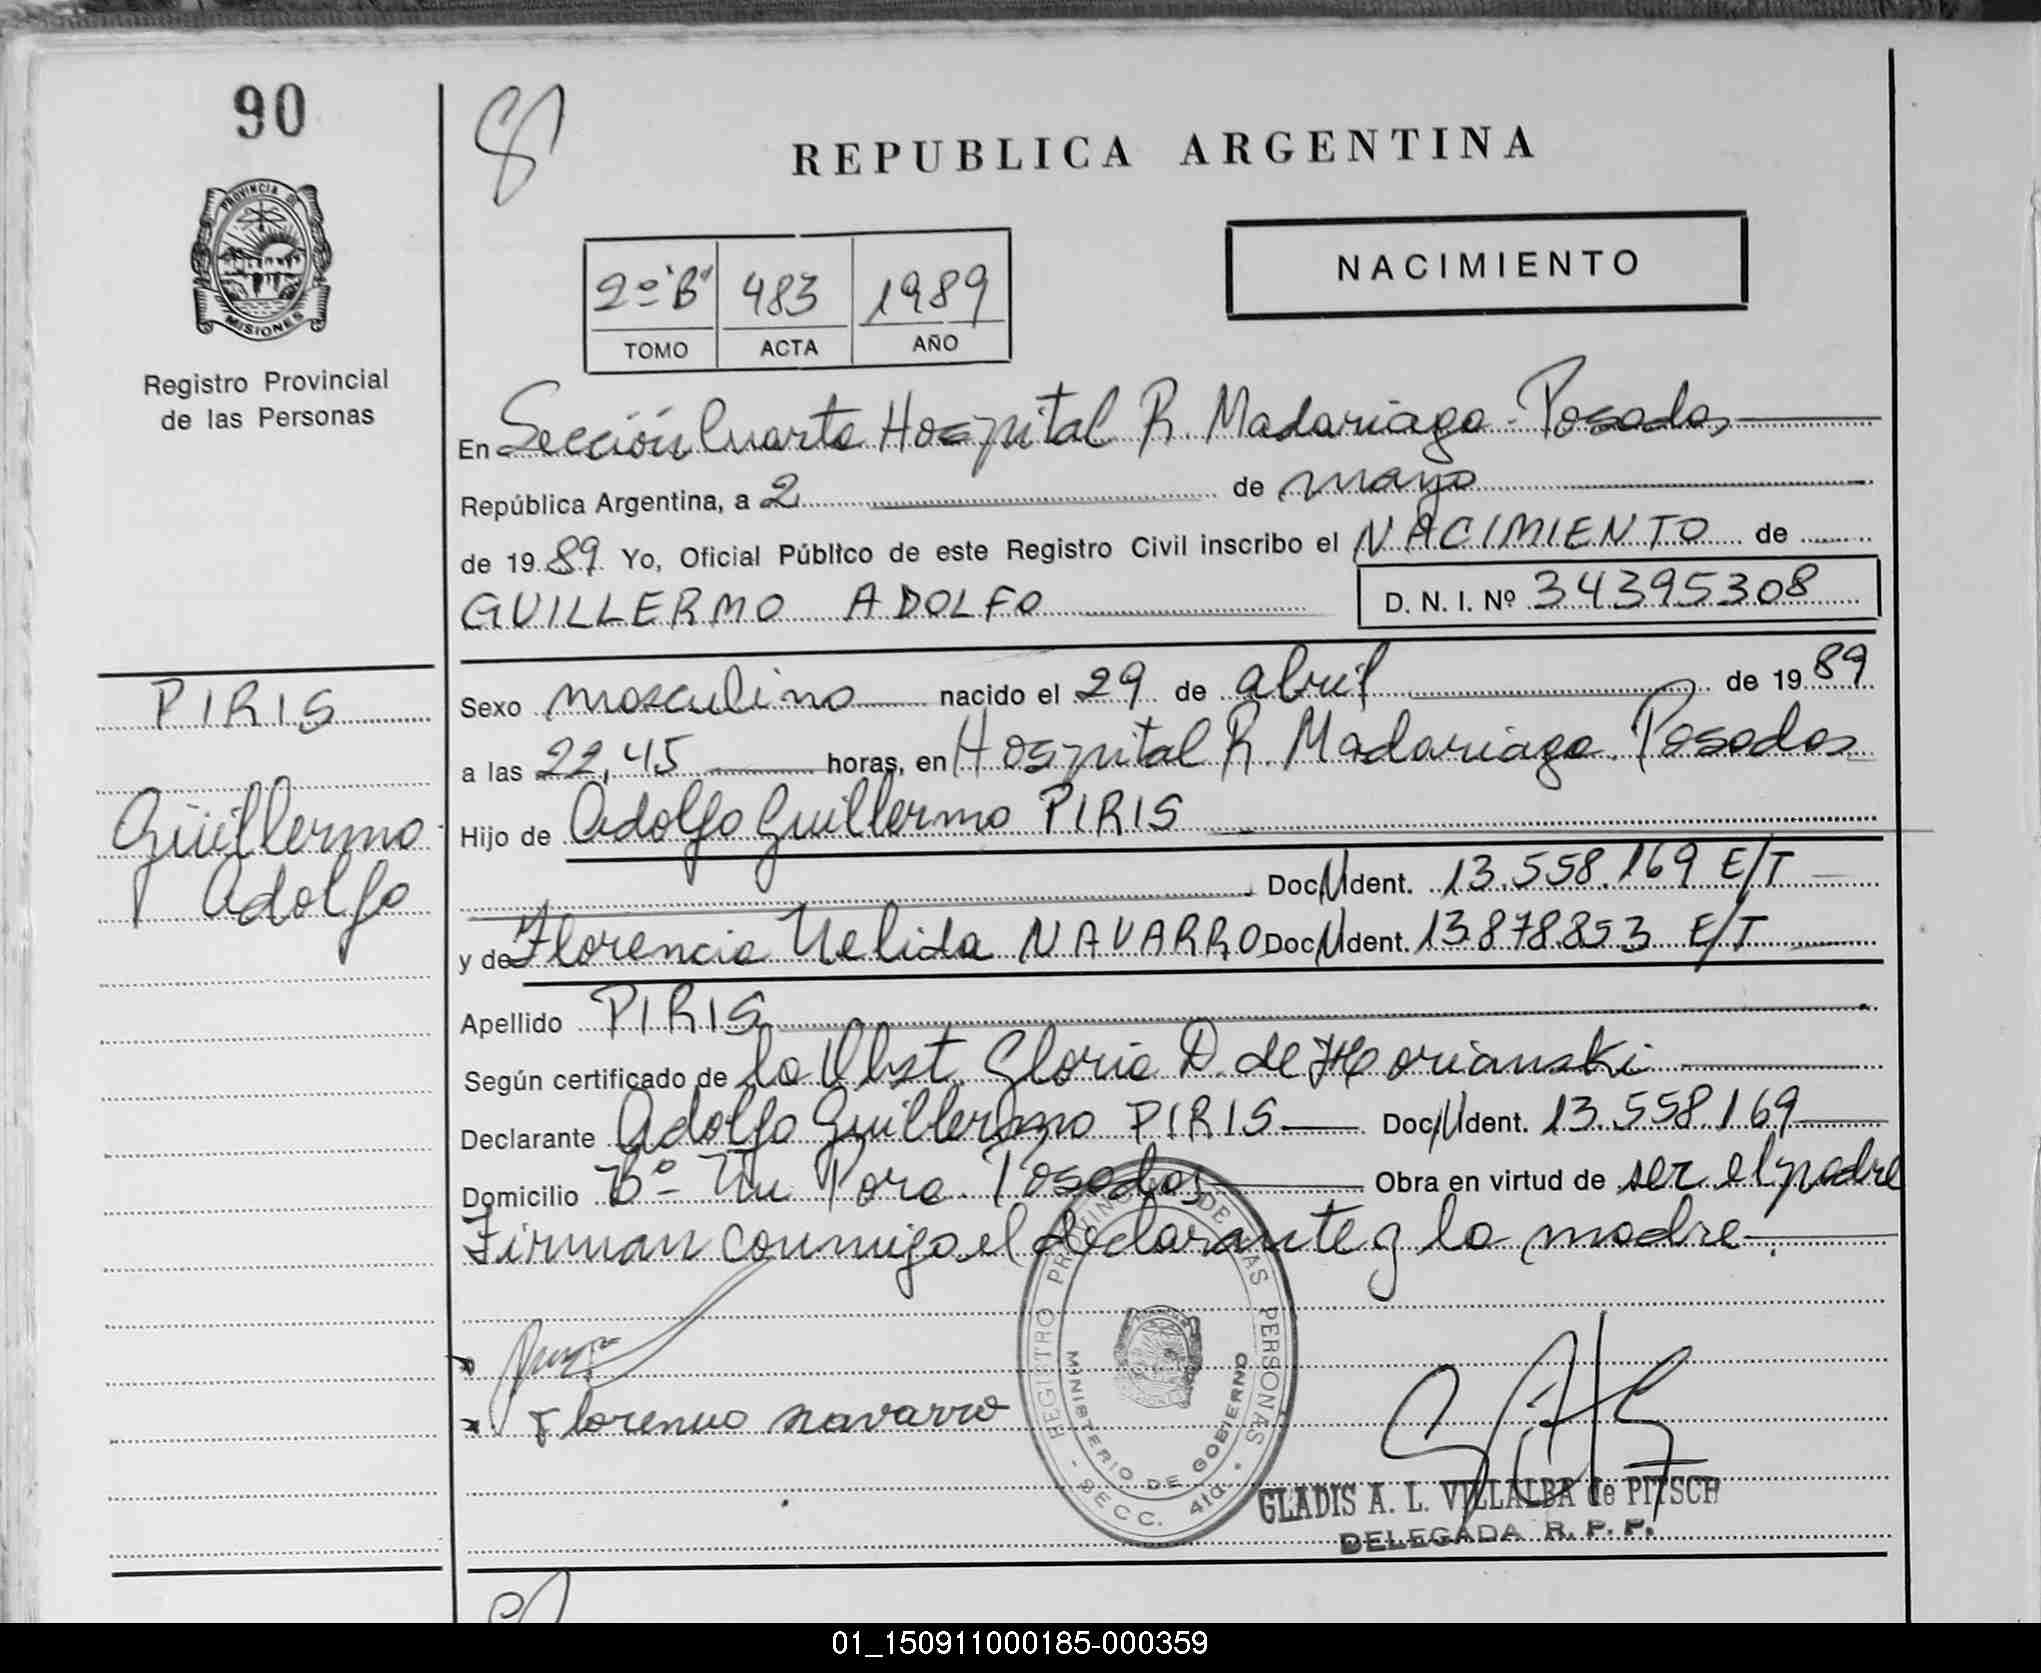 90
REPUBLICA ARGENTINA
PROVINCIA DE
MISIONES
Registro Provincial
de las Personas
2º "B" 483 1989
TOMO ACTA AÑO
NACIMIENTO
En Sección Cuarta Hospital R. Madariaga - Posadas
República Argentina, a 2 de mayo
de 1989 Yo, Oficial Público de este Registro Civil inscribo el NACIMIENTO de
GUILLERMO ADOLFO D. N. I. Nº 34395308
PIRIS
Guillermo
Adolfo
Sexo masculino nacido el 29 de abril de 1989
a las 22,45 horas, en Hospital R. Madariaga. Posadas
Hijo de Adolfo Guillermo PIRIS
Doc. Ident. 13.558.169 E/T
y de Florencia Nelida NAVARRO Doc. Ident. 13878.853 E/T
Apellido PIRIS
Según certificado de la Obst. Gloria D. de
Declarante Adolfo Guillermo PIRIS Doc. Ident. 13.558.169
Domicilio Bº Tiu Pora. Posadas Obra en virtud de ser el padre
Firman conmigo el declarante y la madre
Florencia navarro
REGISTRO PROVINCIAL DE LAS PERSONAS
MINISTERIO DE GOBIERNO
- SECC. 4ta. -
GLADIS A. L. VILLALBA de PITSCH
DELEGADA R. P. P.
01_150911000185-000359